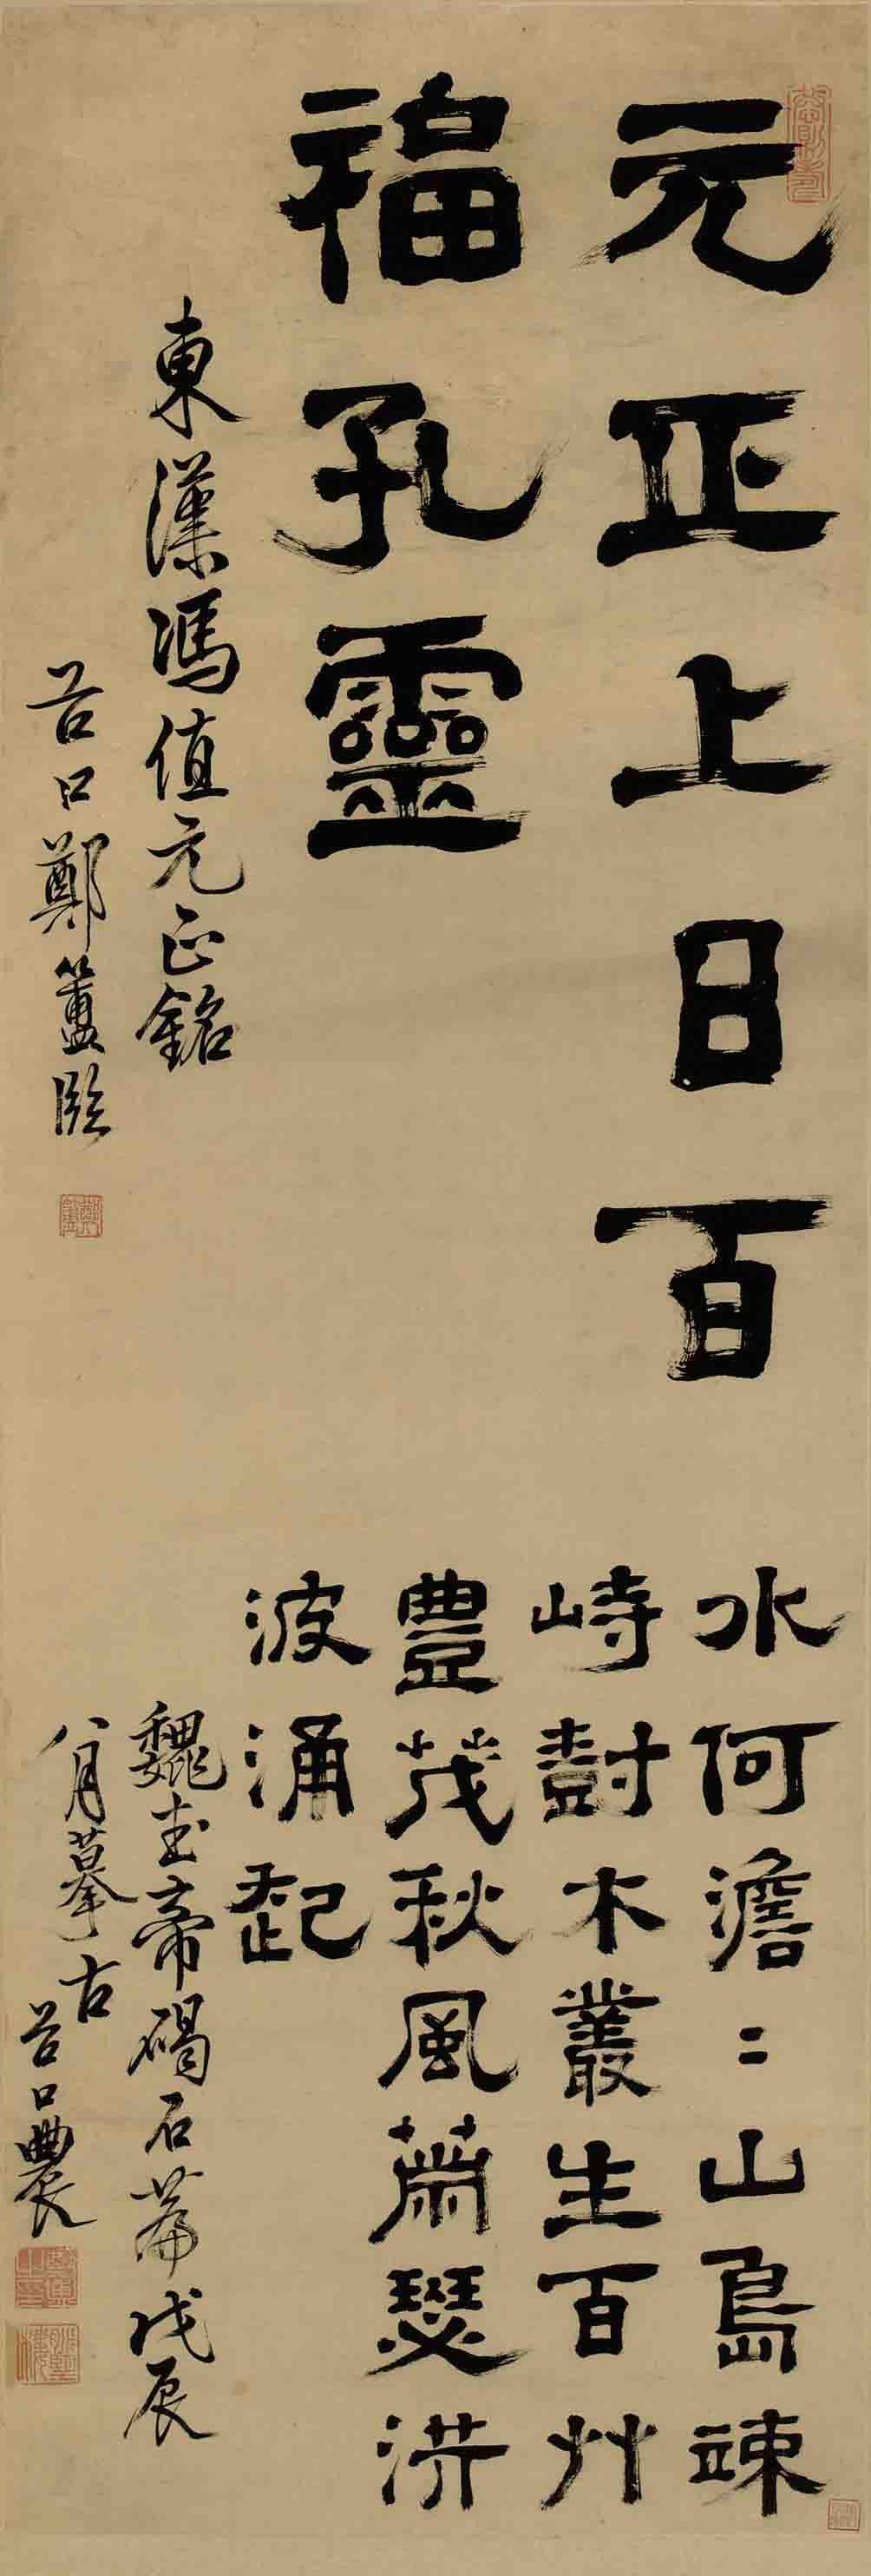 元正上日百
福孔靈
東漢馮値元正銘
谷口鄭簠臨
水何澹〻山島竦
峙樹木叢生百艸
豊茂秋風蕭瑟洪
波涌起
魏武帝碣石篇戊辰
八月摹古
谷口農